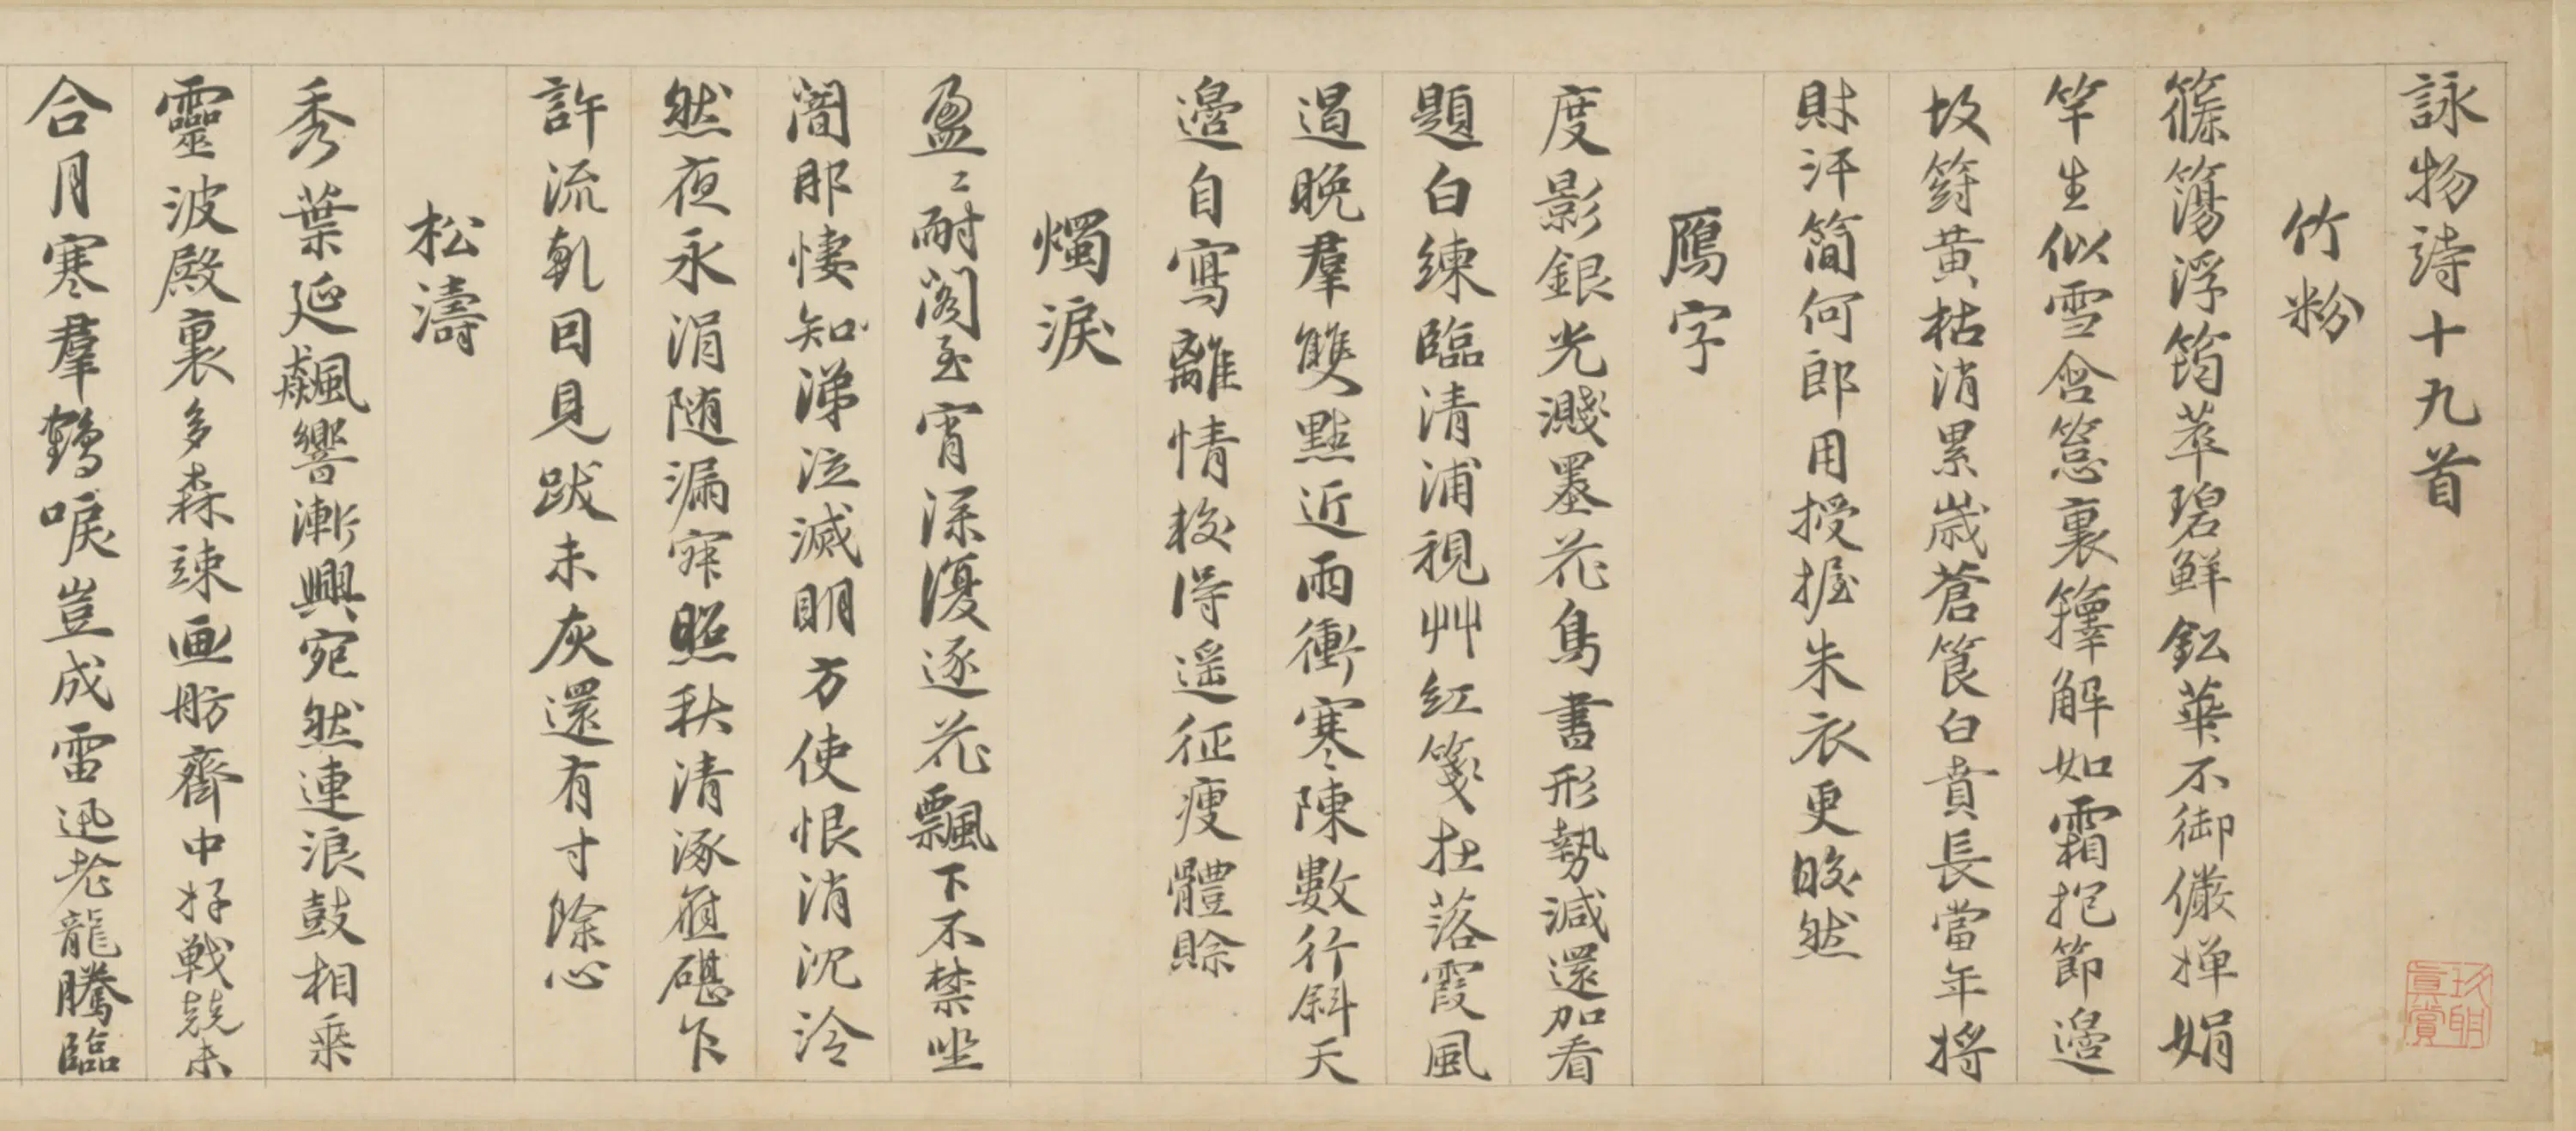 詠物詩十九首
竹粉
篠簜浮筠萃碧鮮鉛華不御儼嬋娟
竿生似雪含箬裏籜解如霜抱節邊
坟籍黃枯消累歲蒼筤白賁長當年將
財汗簡何郎用授握朱衣更皎然
鴈字
度影銀光濺墨花鳥書形勢減還加看
題白練臨清浦視艸紅箋在落霞風
遏晚羣雙點近雨衝寒陳數行斜天
邊自寫離情校得遥征瘦體賒
燭淚
盈〻耐閣玉宵深復逐花飄下不禁坐
闇那悽知涕泣滅明方使恨消沈泠
然夜永涓随漏寂照秋清涿雁碪乍
許流乾回見跋未灰還有寸餘心
松濤
秀葉延飆響漸興宛然連浪鼓相乘
靈波殿裏多森竦画舫齋中好戰兢未
合月寒羣鶴唳豈成雷迅老龍騰臨
玖明真賞